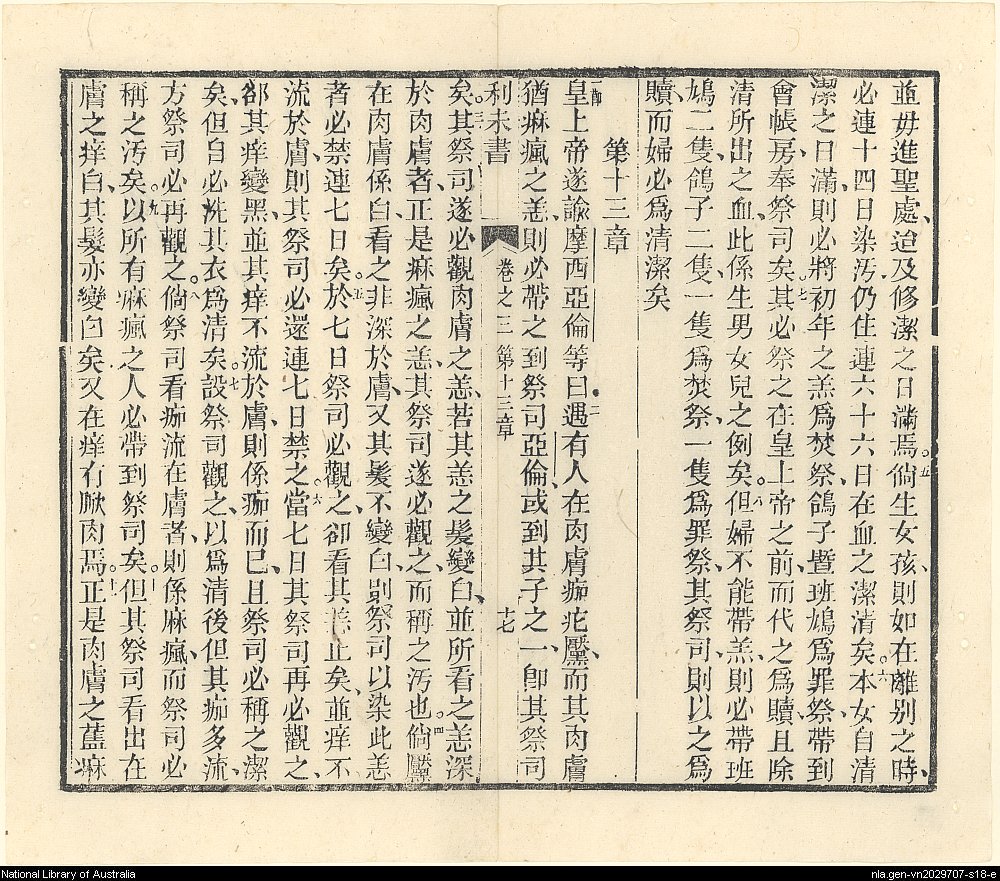 並毋進聖處迨及修潔之日滿焉倘生女孩則如在離別之時
必連十四日染汚仍住連六十六日在血之潔清矣本女自清
潔之日滿則必將初年之羔爲焚祭鴿子曁班鳩爲罪祭帶到
會帳房奉祭司矣其必祭之在皇上帝之前而代之爲贖且除
清所出之血此係生男女兒之例矣但婦不能帶羔則必帶班
鳩二隻鴿子二隻一隻爲焚祭一隻爲罪祭其祭司則以之爲
贖而婦必爲清潔矣
第十三章
皇上帝遂諭摩西亞倫等曰遇有人在肉膚痂疕黶而其肉膚
猶痳瘋之恙則必帶之到祭司亞倫或到其子之一卽其祭司
利未書 卷之三 第十三章 十七
矣其祭司遂必觀肉膚之恙若其恙之髮變白並所看之恙深
於肉膚者正是痳瘋之恙其祭司遂必觀之而稱之汚也倘黶
在肉膚係白看之非深於膚又其髮不變白則祭司以染此恙
者必禁連七日矣於七日祭司必觀之卻看其恙止矣並痒不
流於膚則其祭司必還連七日禁之當七日其祭司再必觀之
卻其痒變黑並其痒不流於膚則係痂而已且祭司必稱之潔
矣但自必洗其衣爲清矣設祭司觀之以爲清後但其痂多流
方祭司必再觀之倘祭司看痂流在膚者則係痳瘋而祭司必
稱之汚矣以所有痳瘋之人必帶到祭司矣但其祭司看出在
膚之痒白其髮亦變白矣又在痒有瘚肉焉正是肉膚之舊痳
National Library of Australia
nla.gen-vn2029707-s18-e